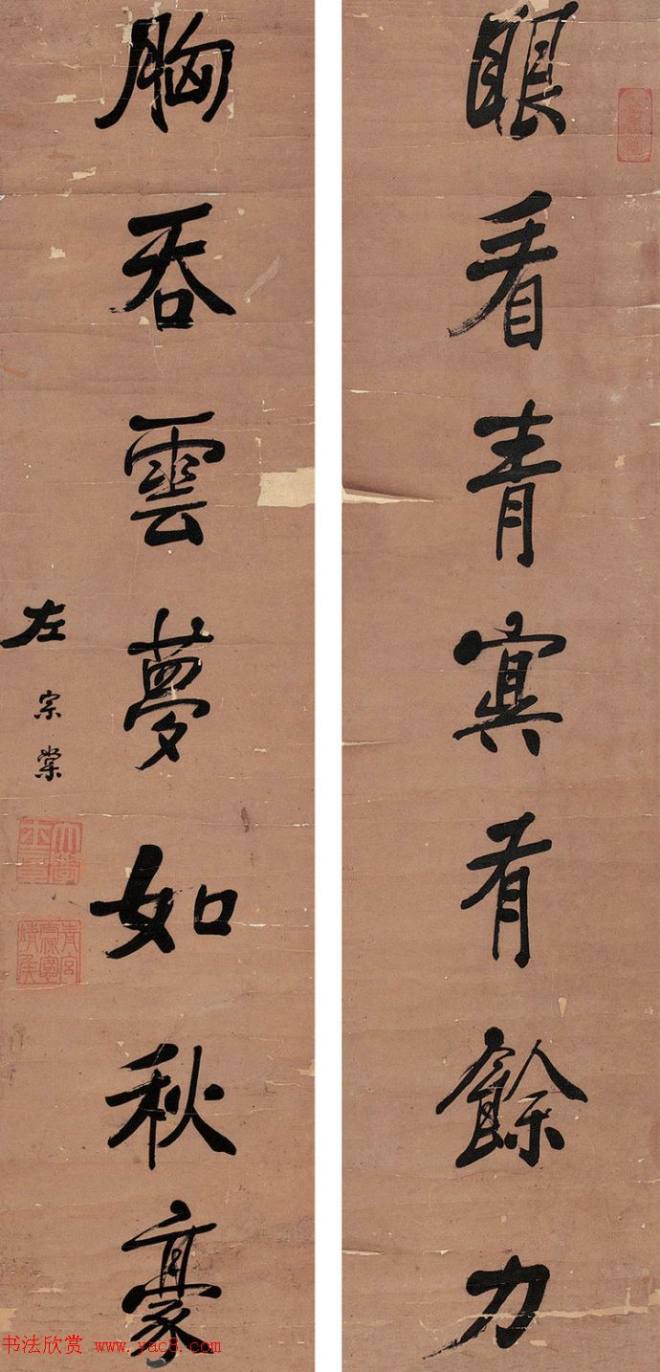 眼看青冥有餘力
胸吞雲夢如秋豪
左宗棠
书法欣赏 www.yac8.com